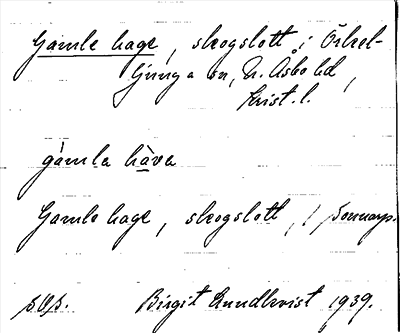 Gamle hage, skogslott i Örkel-
ljunga sn, N. Åsbo hd,
Krist. l.
gàmla hàva
Gamle hage, skogslott, / Sonnarp.
s. Ös.
Birgit Lundkvist 1939.